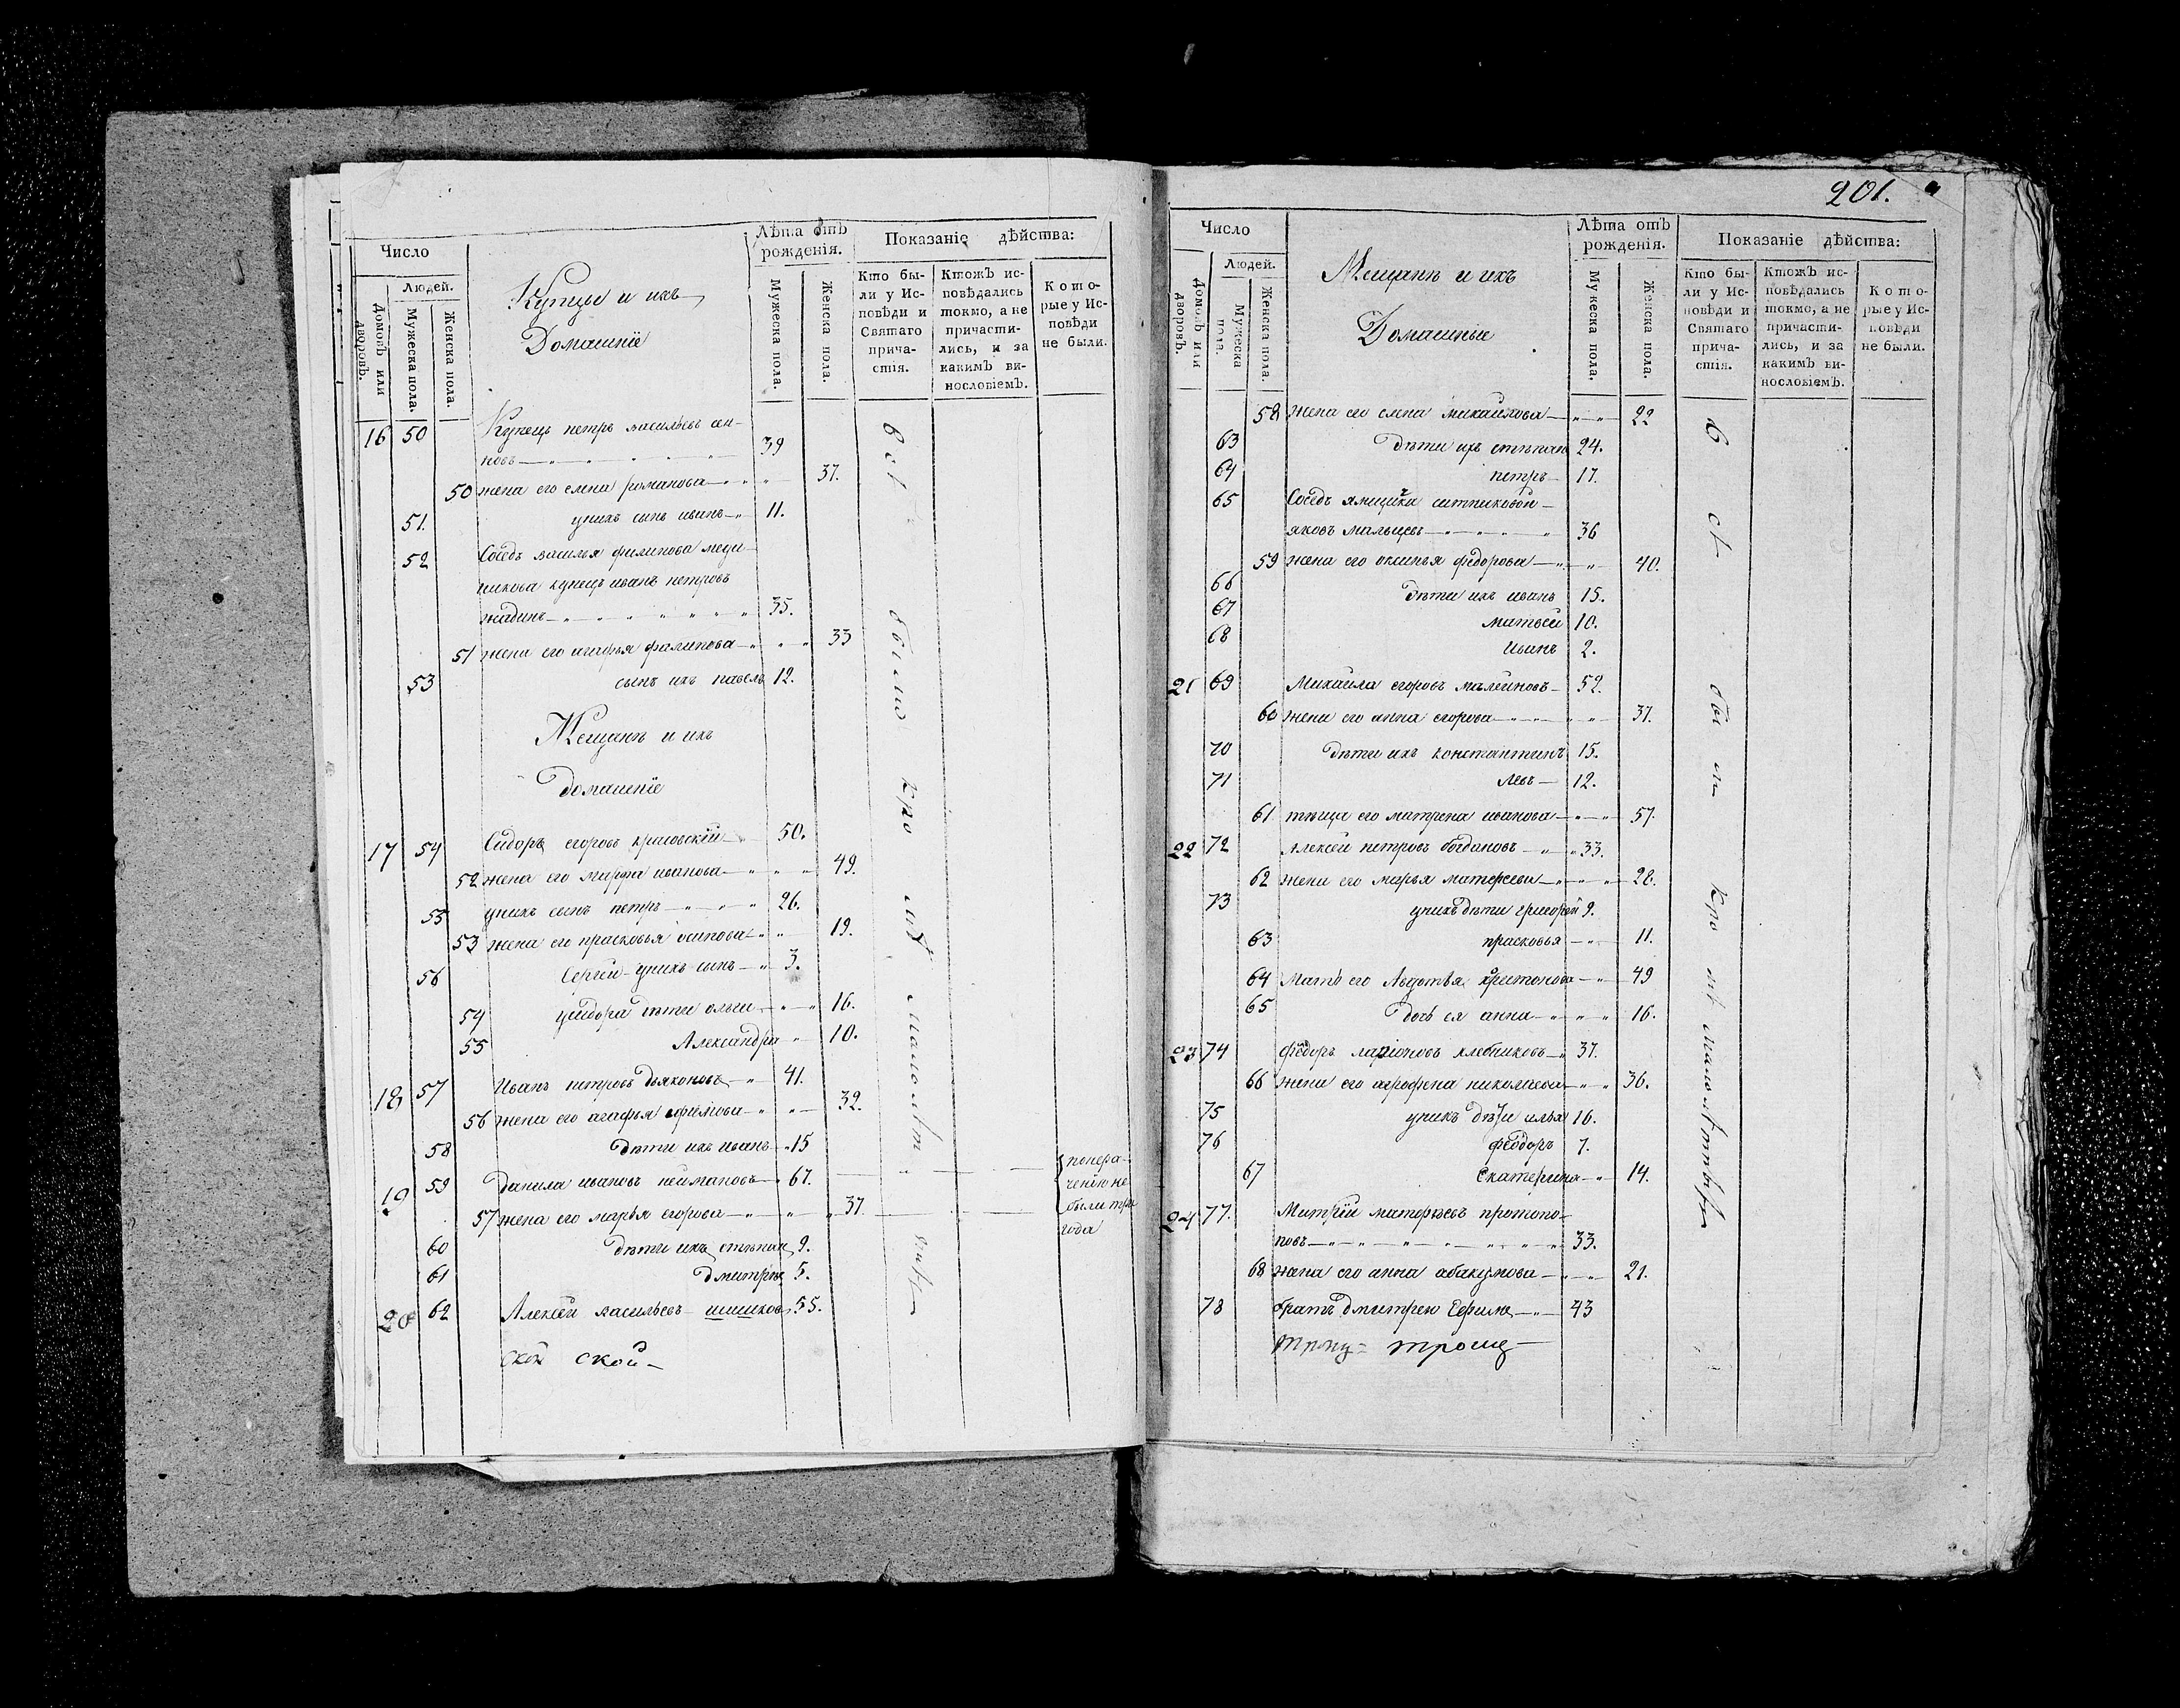 Число
Людей.
Домовъ или дворовъ.
Мужеска пола.
Женска пола.
Купцы и ихъ
Домашніе
Лѣта отъ рожденія.
Мужеска пола.
Женска пола.
Показаніе дѣйства:
Кто были у Исповѣди и Святаго причастія.
Ктожъ исповѣдались токмо, а не причастились, и за какимъ винословіемъ.
Которые у Исповѣди не были.
16 50 Купецъ петръ васильевъ сен-
новъ 39
50 жена его елена романова 37.
51. уних сынъ иванъ 11.
52 Соседъ василья филипова меди-
никова купецъ иванъ петровъ
жадинъ 35.
51 жена его агафья филипова 33
53 сынъ ихъ павелъ 12.
Мещанѣ и ихъ
домашніе
17 54 Сидоръ егоровъ красовскій 50.
52 жена его марфа иванова 49.
55 унихъ сынъ петръ 26.
53 жена его прасковья осипова 19.
56 Сергеи унихъ сынъ 3.
54 усидора дѣти ольга 16.
55 Александра 10.
18 57 Иванъ петровъ дьяконовъ 41.
56 жена его агафья ефимова 32.
58 дѣти ихъ иванъ 15
19 59 данила ивановъ неимановъ 67.
57 жена его марья егорова 37.
понера-
ченію не
были три
года
60 дѣти ихъ степан 9.
61 дмитрие 5.
20 62 Алексѣй васильевъ шишков 55.
ской ской
всѣ были кроме малолѣтнихъ
201.
Число
Людей.
Домовъ или дворовъ.
Мужеска пола.
Женска пола.
Мещанѣ и ихъ
Домашные
Лѣта отъ рожденія.
Мужеска пола.
Женска пола.
Показаніе дѣйства:
Кто были у Исповѣди и Святаго причастія.
Ктожъ исповѣдались токмо, а не причастились, и за какимъ винословіемъ.
Которые у Исповѣди не были.
58 жена его елена михаилова 22
63 дѣти ихъ степан 24.
64 петръ 17.
65 Соседъ ямщика ситниковой
яковъ мальцевъ 36
59 жена его оксинья федорова 40.
66 дѣти ихъ иванъ 15.
67 матвеи 10.
68 Иванъ 2.
21 69 Михаила егоровъ малеиновъ 52.
60 жена его анна егорова 37.
70 дѣти ихъ константинъ 15.
71 левъ 12.
61 тѣща его матрена иванова 57.
22 72 алексей петровъ богдановъ 33.
62 жена его марья матфеева 28.
73 унихъ дѣти григорей 9.
63 прасковья 11.
64 Мать его Авдотья 49
65 дочь ея анна 16.
23 74 федоръ ларіоновъ хлебниковъ 37.
66 жена его агрофена николаева 36.
75 унихъ дѣти илья 16.
76 федоръ 7.
67 Екатерина 14.
24 77. Митрій матфѣевъ протопо-
повъ 33.
68 жена его анна абакумова 21.
78 братъ дмитрею Ефимъ 43
троиц
всѣ были кроме малолѣтныхъ